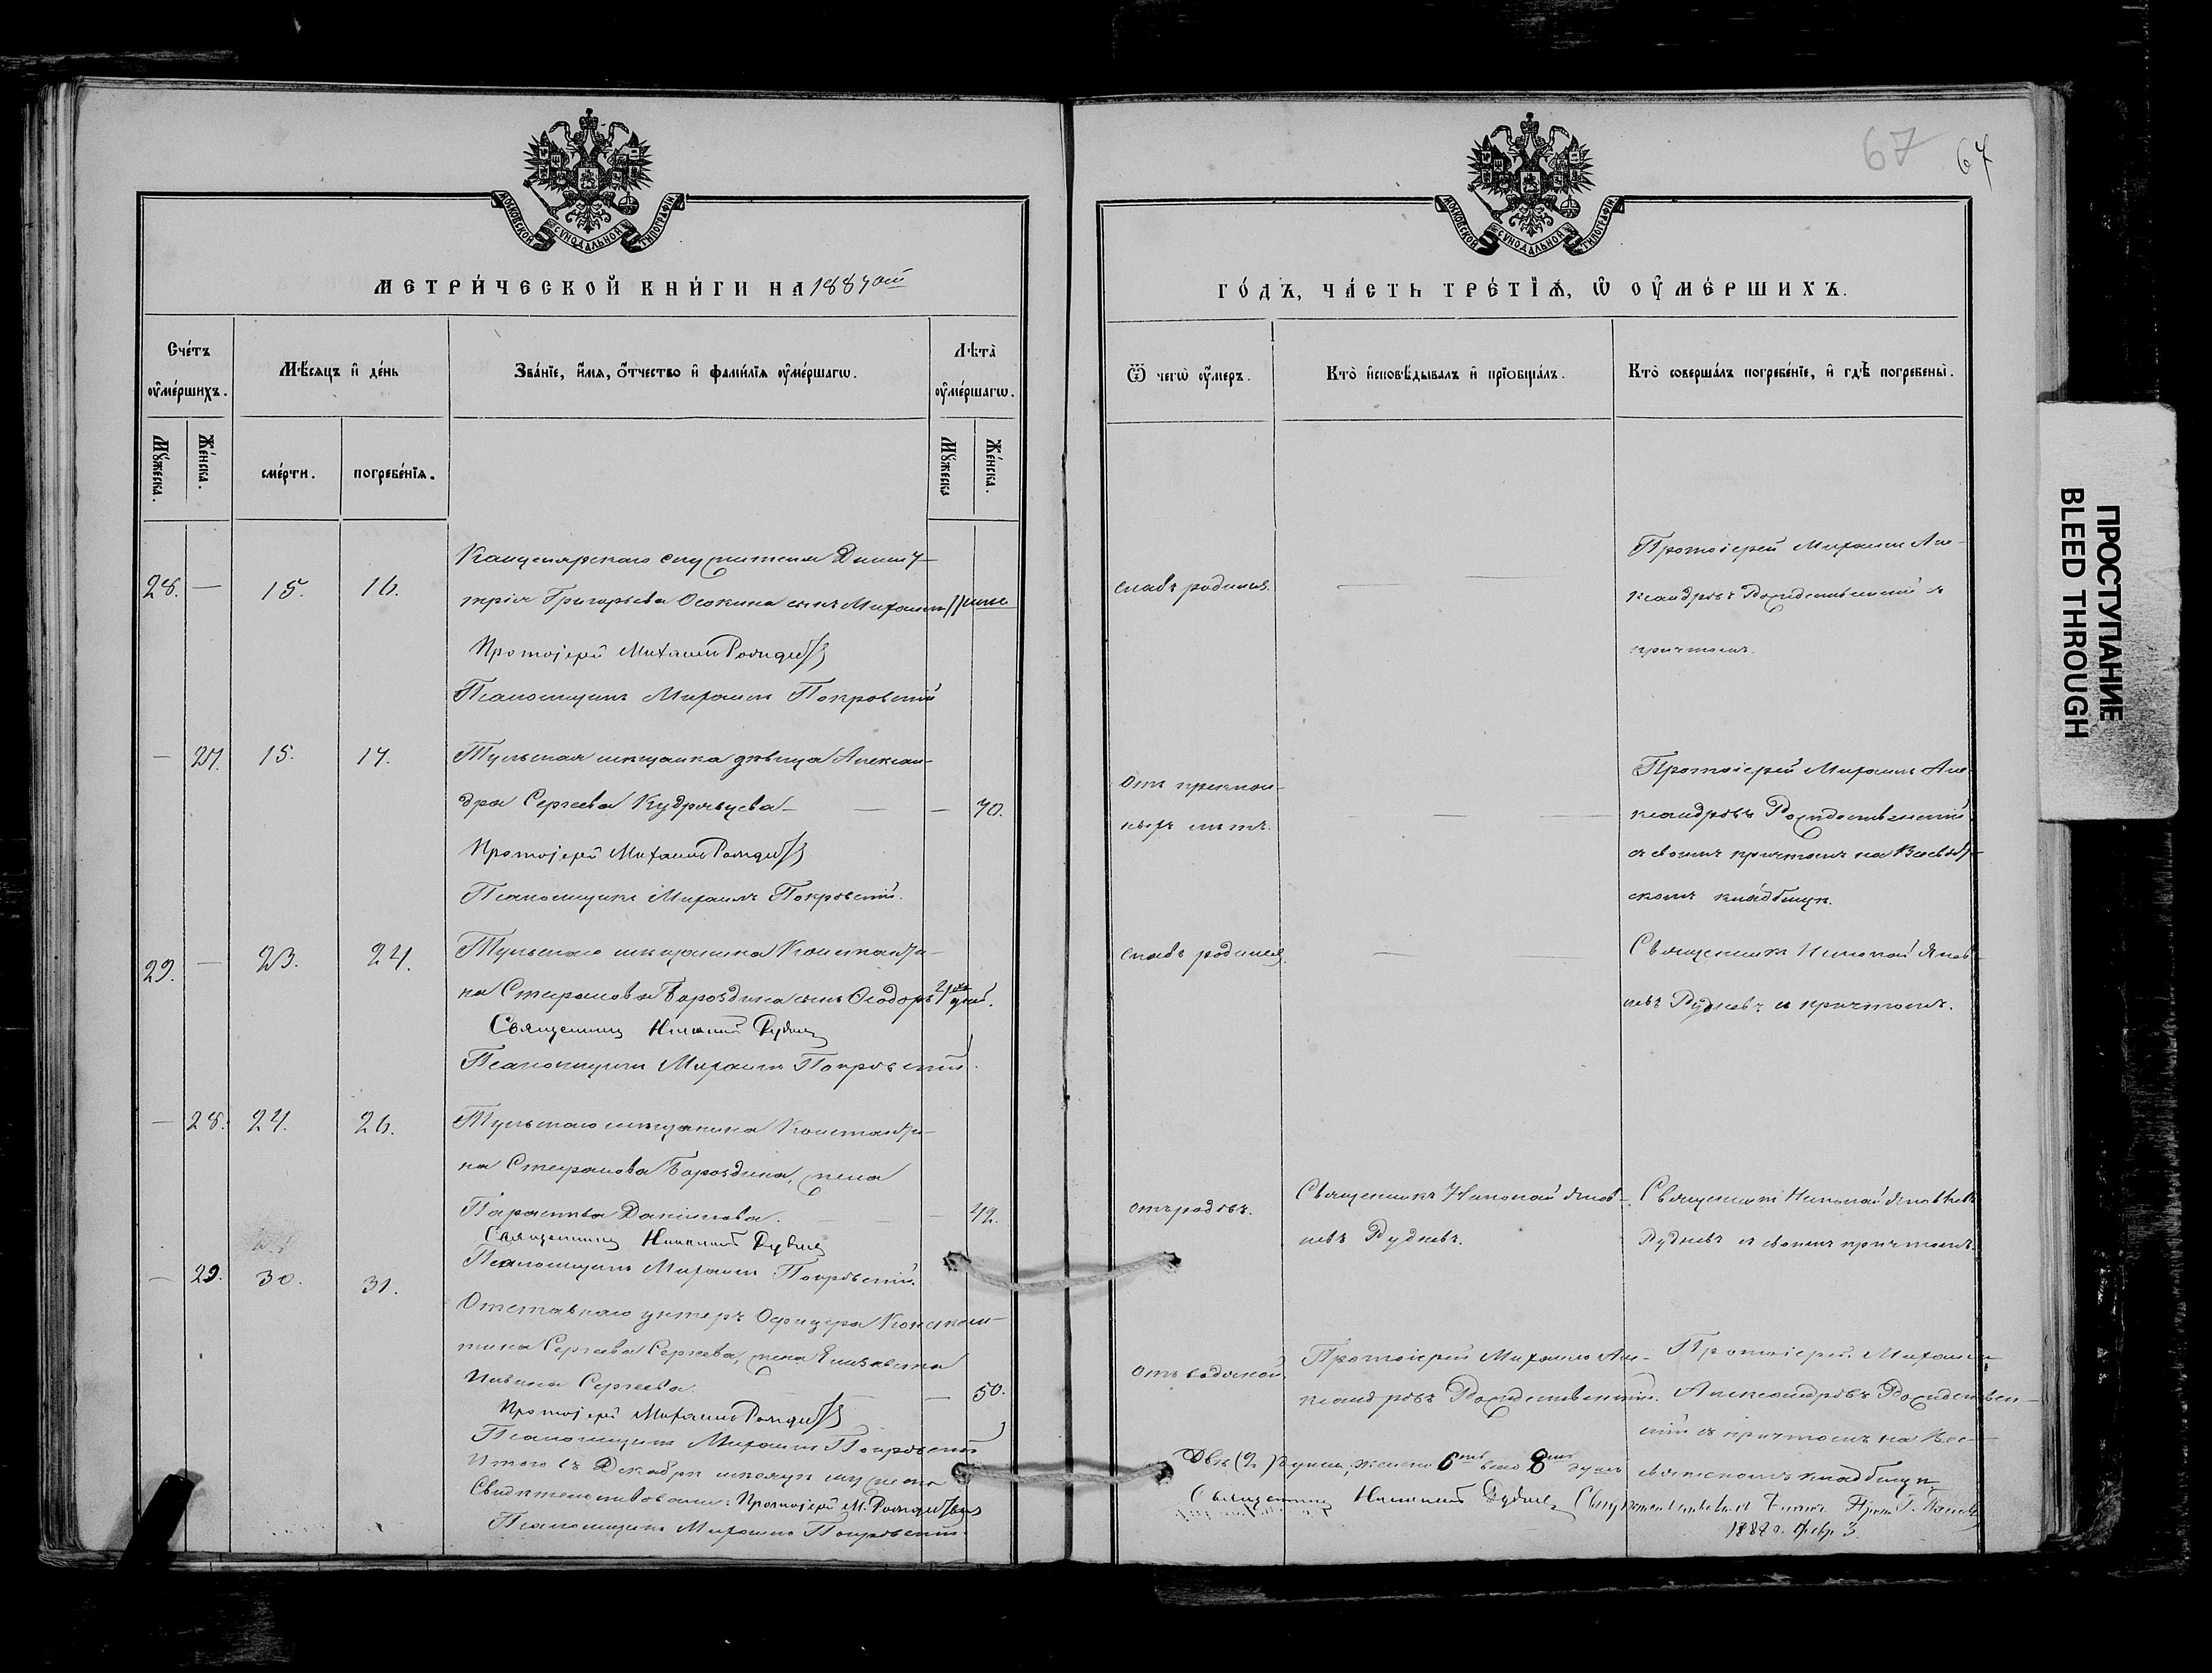 МОСКОВСКОЙ СѴНОДАЛЬНОЙ ТИПОГРАФІИ
МЕТРИ́ЧЕСКОЙ КНИ́ГИ НА 1887 ой
Сче́тъ ᲂу҆ме́ршихъ.
Мѣ́сяцъ и҆ де́нь
Зва́нїе, и҆́мя, ѻ҆́тчество и҆ фами́лїя ᲂу҆ме́ршагѡ.
Лѣ́та̀ ᲂу҆ме́ршагѡ.
Мꙋ́жеска.
Же́нска.
сме́рти.
погребе́нїѧ.
Мꙋ́жеска
Же́нска.
28. — 15. 16.
Канцелярскаго служителя Дими-
трія Григорьева Осокина сынъ Михаилъ
Протоіерей Михаилъ Рождеств
Псаломщикъ Михаилъ Покровскій
— 27. 15. 17.
Тульская мѣщанка дѣвица Алексан-
дра Сергеева Кудрявцева — — — 70.
Протоіерей Михаилъ Рождеств
Псаломщикъ Михаилъ Покровскій.
29. — 23. 24.
Тульскаго мѣщанина Константи-
на Стефанова Бороздина сынъ Ѳеодоръ дней.
Священникъ Николай Руднев
Псаломщикъ Михаилъ Покровскій.
— 28. 24. 26.
Тульскаго мѣщанина Константи-
на Стефанова Бороздина, жена
Параскева Данилова. — — — 42.
Священникъ Николай Руднев
Псаломщикъ Михаилъ Покровскій.
— 29. 30. 31.
Отставнаго унтеръ Офицера Констан-
тина Сергеева Сергеева, жена Елисавета
Иванова Сергеева. — — 50.
Протоіерей Михаилъ Рождеств
Псаломщикъ Михаилъ Покровскій
Итого въ Декабрѣ мѣсяцѣ мужеска
Свидѣтельствовали: Протоіерей М. Рождеств
Псаломщикъ Михаилъ Покровскій
67 67
МОСКОВСКОЙ СѴНОДАЛЬНОЙ ТИПОГРАФІИ
ГО́ДЪ, ЧА́СТЬ ТРЕ́ТЇѦ, Ѡ ᲂУ҆МЕ́РШИХЪ.
Ѿ чегѡ̀ ᲂу҆́меръ.
Кто̀ и҆сповѣ́дывалъ и҆ прїѡбща́лъ.
Кто̀ соверша́лъ погребе́нїе, и҆ гдѣ̀ погребены̀.
слабъ родился. — —
Протоіерей Михаилъ Але-
ксандровъ Рождественскій съ
причтомъ.
Отъ преклон-
ныхъ лѣтъ. — — —
Протоіерей Михаилъ Але-
ксандровъ Рождественскій
съ своимъ причтомъ на Всесвят-
скомъ кладбищѣ.
слабъ родился. — —
Священникъ Николай Яков-
левъ Рудневъ съ причтомъ.
отъ родовъ.
Священникъ Николай Яков-
левъ Рудневъ.
Священникъ Николай Яковлевъ
Рудневъ съ своимъ причтомъ.
Отъ водяной.
Протоіерей Михаилъ Але-
ксандровъ Рождественскій.
Протоіерей Михаилъ
Александровъ Рождествен-
скій съ причтомъ на Все-
святскомъ кладбищѣ
Двѣ (2) души, женска 6 всего 8 душъ
Священникъ Николай Руднев
1888 г. Февр. 3.
ПРОСТУПАНИЕ
BLEED THROUGH